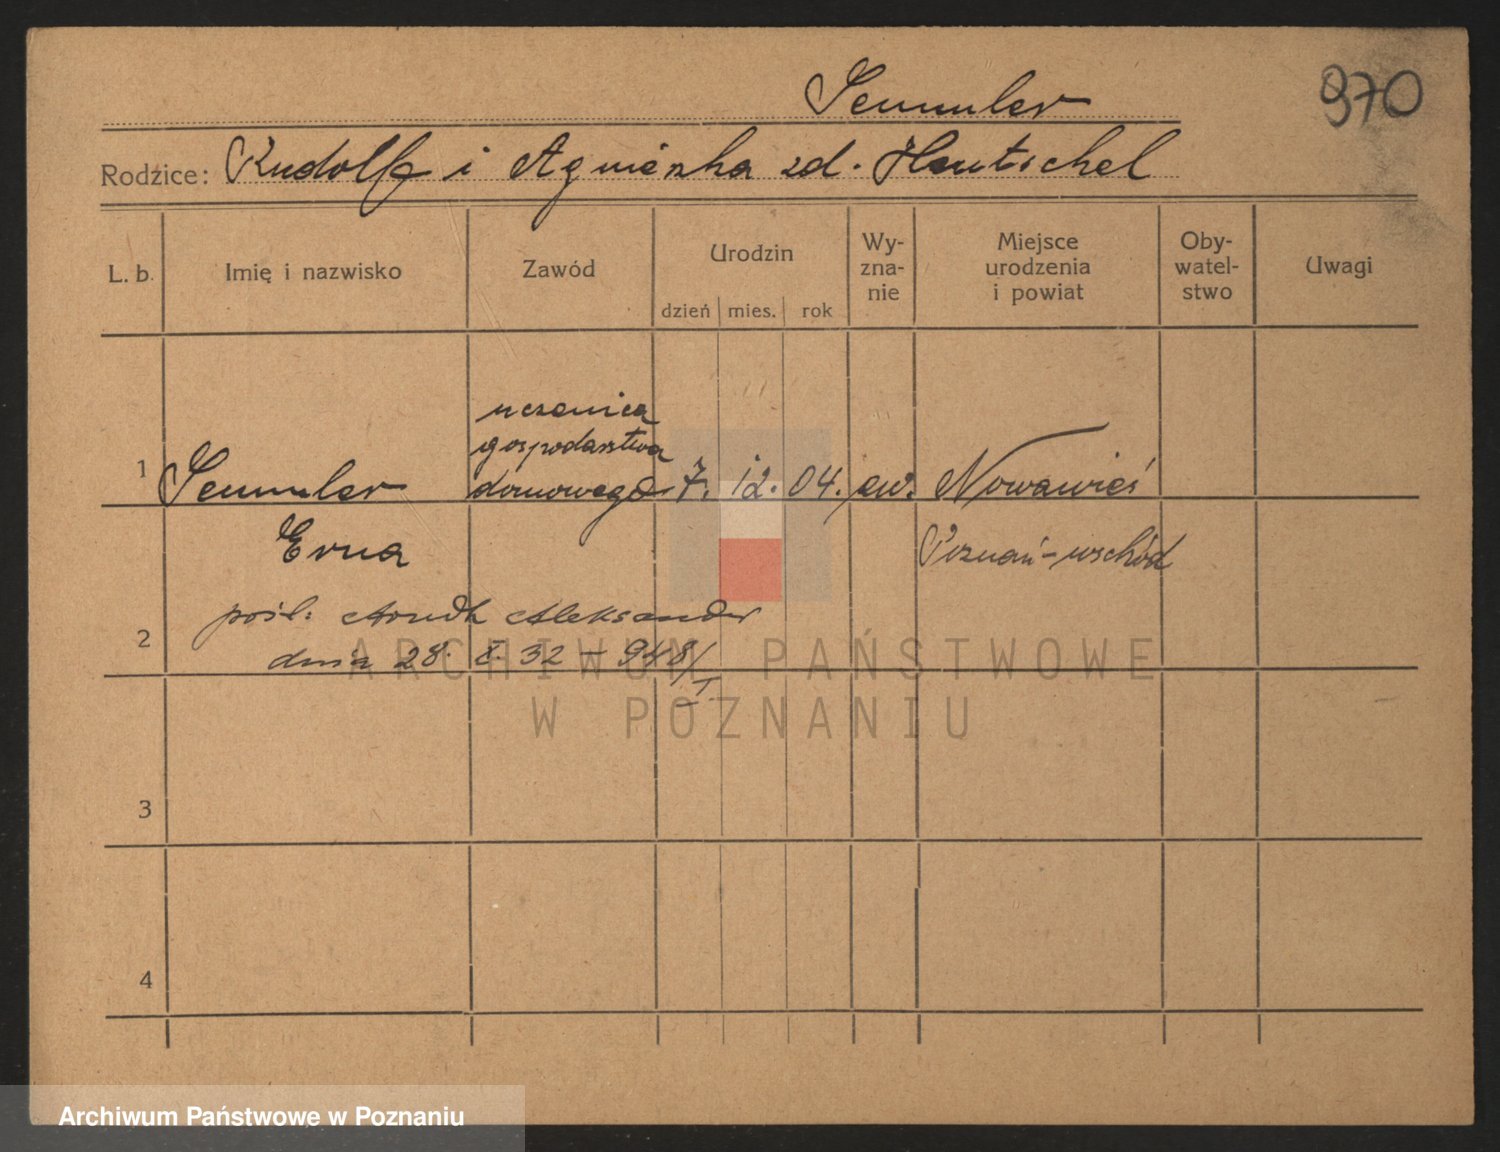 Semmler
970
Rodzice: Rudolf i Agnieszka zd. Hentschel
L. b.
Imię i nazwisko
Zawód
Urodzin
dzień mies. rok
Wy-
zna-
nie
Miejsce
urodzenia
i powiat
Oby-
watel-
stwo
Uwagi
uczenica
gospodarstwa
1 Semmler domowego 7. 12. 04. ew. Nowawieś
Erna Poznań-wschód
2
pośl: Arndt Aleksander
dnia 28. X. 32 – 948/I
ARCHIWUM PAŃSTWOWE
W POZNANIU
3
4
Archiwum Państwowe w Poznaniu